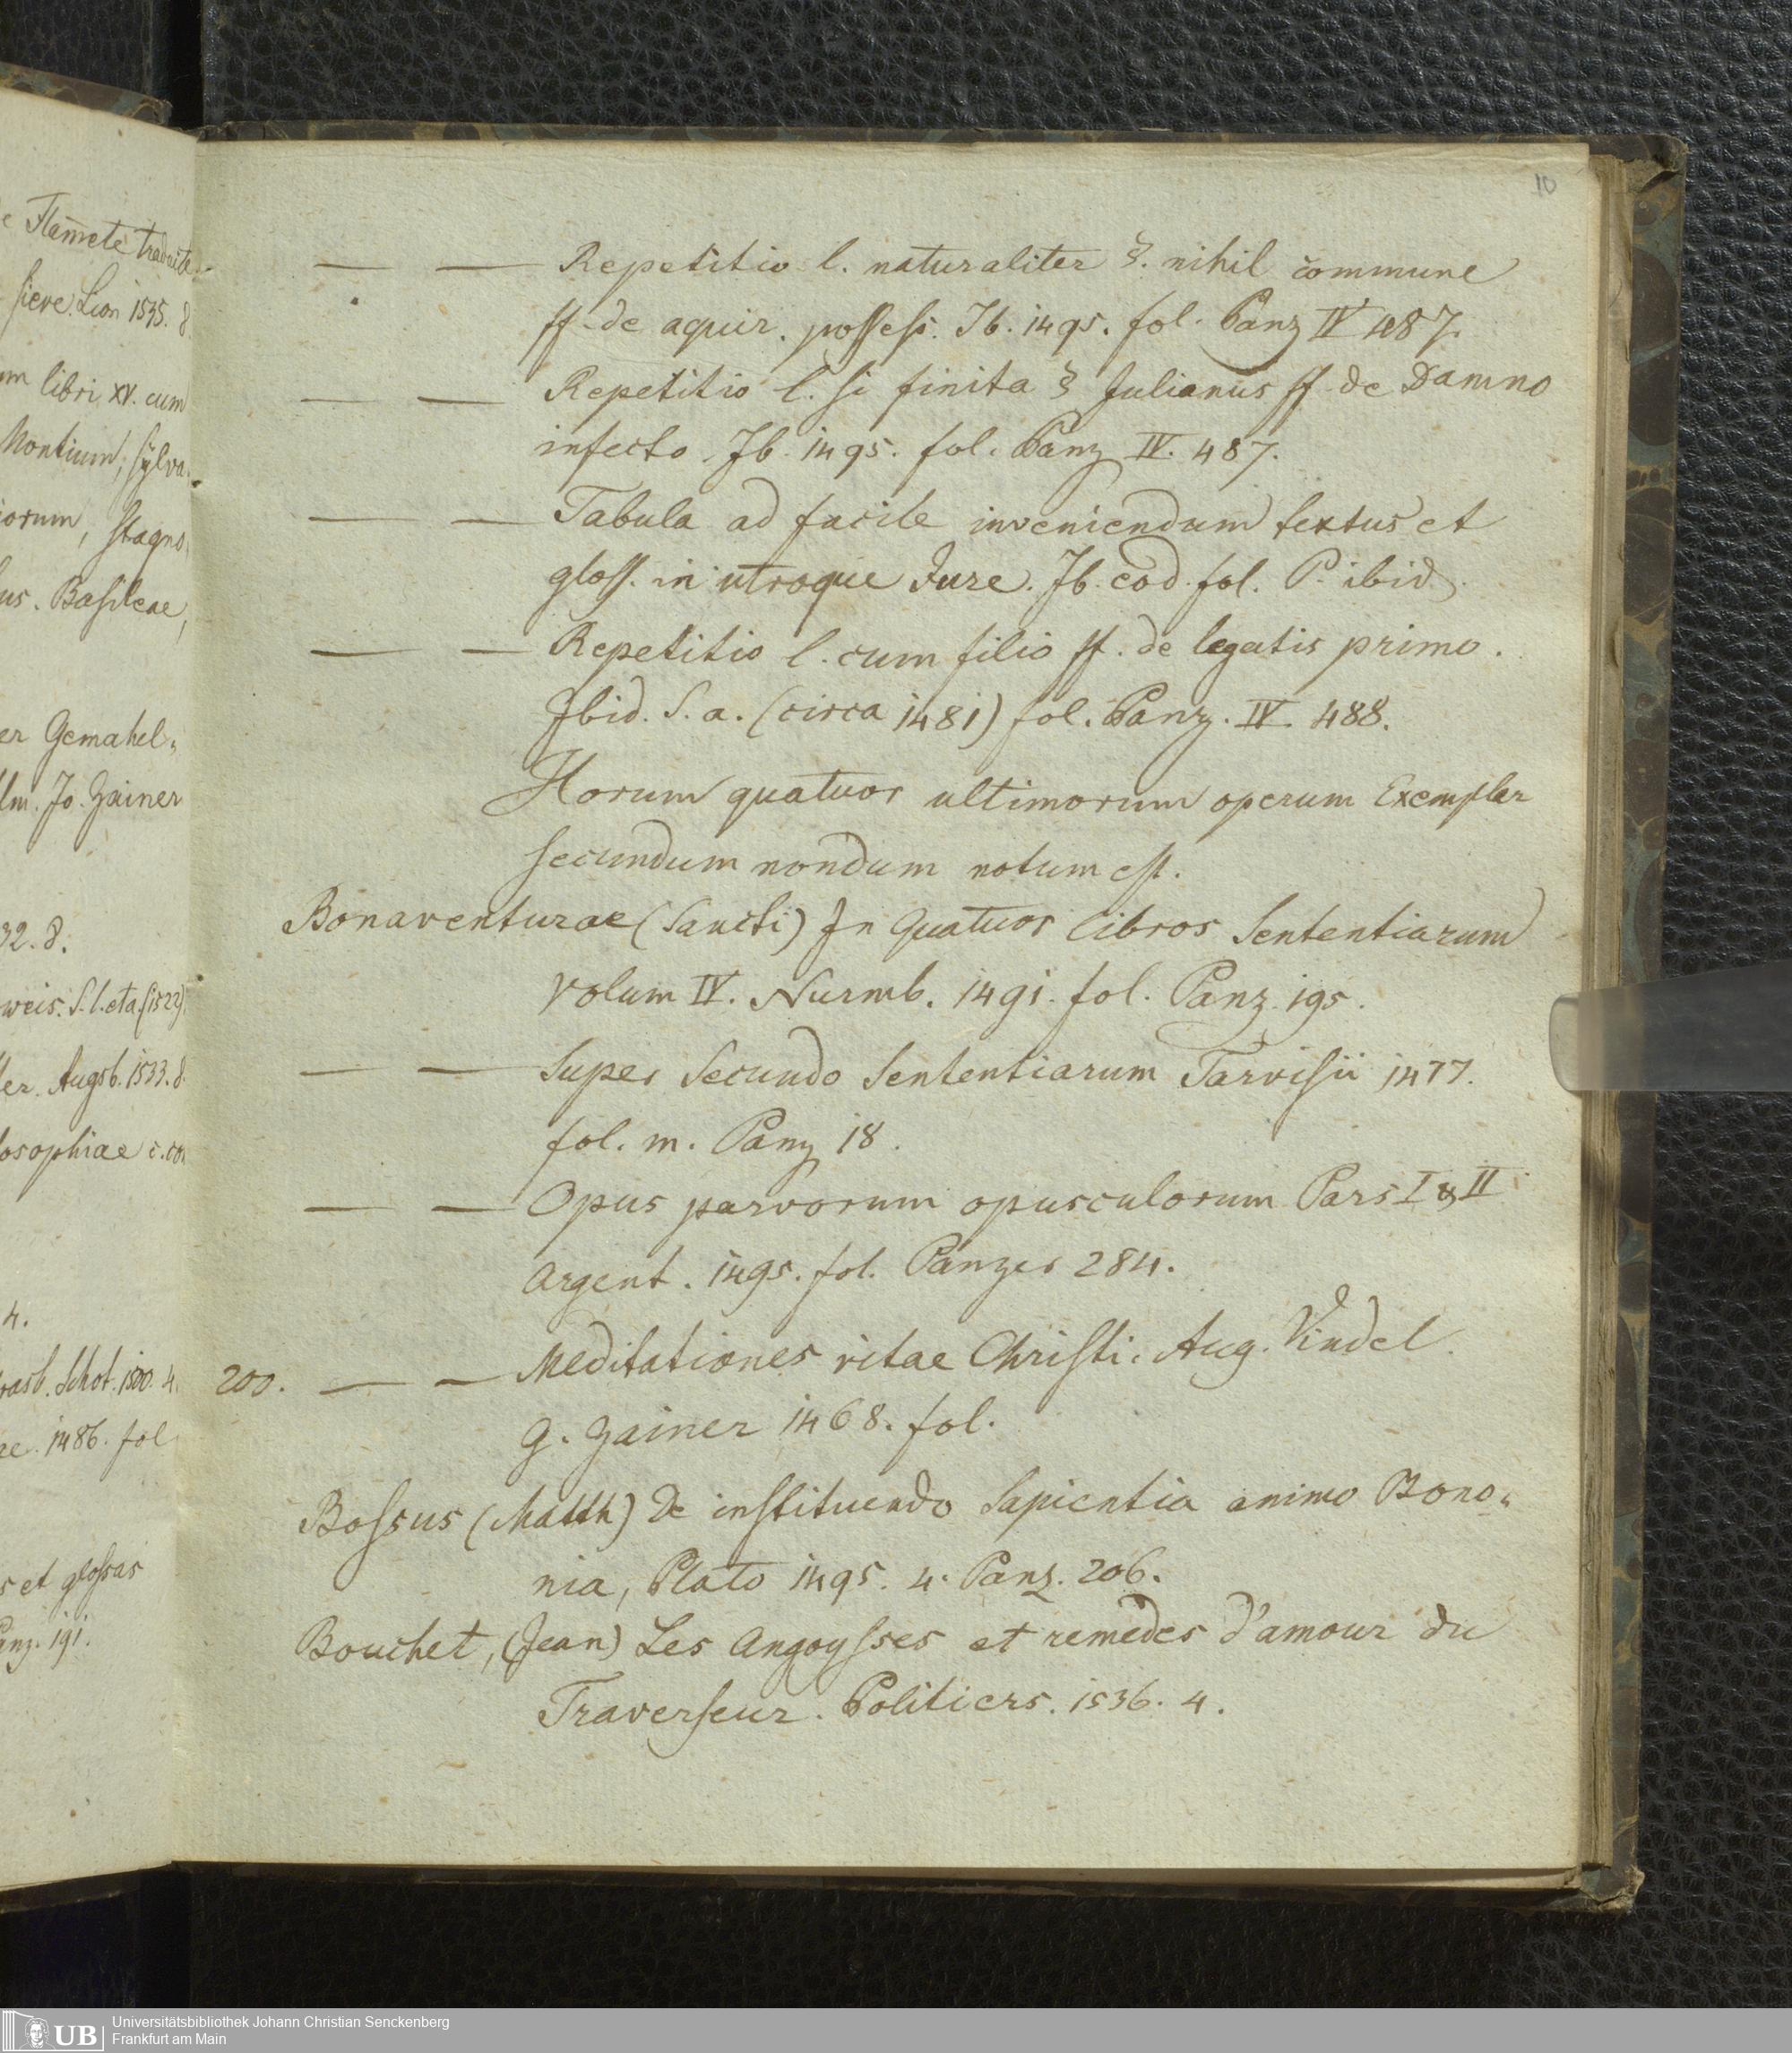 10
— — Repetitio l. naturaliter §. nihil commune
ff. de aquir. possess. Ib. 1495. fol. Panz IV 487.
— — Repetitio l. si finita § Julianus ff. de Damno
infecto. Ib. 1495. fol. Panz IV. 487.
— — Tabula ad facile inveniendum textus et
gloss. in utroque Jure. Ib. eod. fol. P. ibid.
— — Repetitio l. cum filio ff. de legatis primo.
Ibid. S. a. (circa 1481) fol. Panz. IV. 488.
Horum quatuor ultimorum operum Exemplar
secundum nondum notum est.
Bonaventurae (Sancti) In Quatuor libros Sententiarum
volum IV. Nurmb. 1491. fol. Panz. 195.
— — Super Secundo Sententiarum Tarvisii 1477.
fol. m. Panz 18.
— — Opus parvorum opusculorum Pars I & II
Argent. 1495. fol. Panzer 284.
200. — — Meditationes vitae Christi. Aug. Vindel.
G. Zainer 1468. fol.
Bossus (Matth) De instituendo Sapientia animo Bono-
nia, Plato 1495. 4. Panz. 206.
Bouchet, (Jean) Les Angoysses et remedes d'amour du
Traverseur. Politiers. 1536. 4.
Flam̄ete traduite
Lion 1535. 8
libri XV. cum
Montium, sylva-
stagno-
Basileae,
Gemahel-
Jo. Zainer
32. 8.
weis. S. l. et a. (1522)
Augsb. 1533. 8.
4.
Schot. 1500. 4.
1486. fol
et glossas
191.
UB
Universitätsbibliothek Johann Christian Senckenberg
Frankfurt am Main